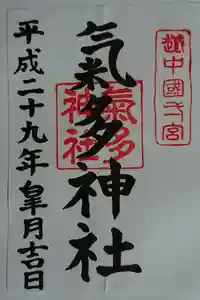 越中國弌宮
氣多神社
氣多神社
平成二十九年皐月吉日